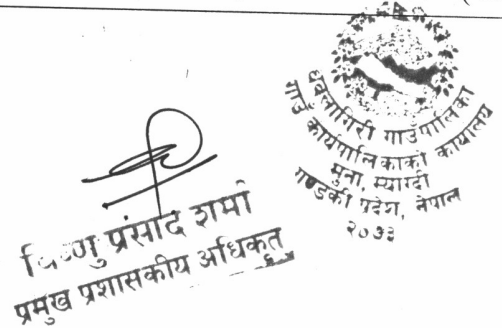 धवलागिरी गाउँपालिका
गाउँ कार्यपालिकाको कार्यालय
मुना, म्याग्दी
गण्डकी प्रदेश, नेपाल
२०७३
विष्णु प्रसाद शर्मा
प्रमुख प्रशासकीय अधिकृत